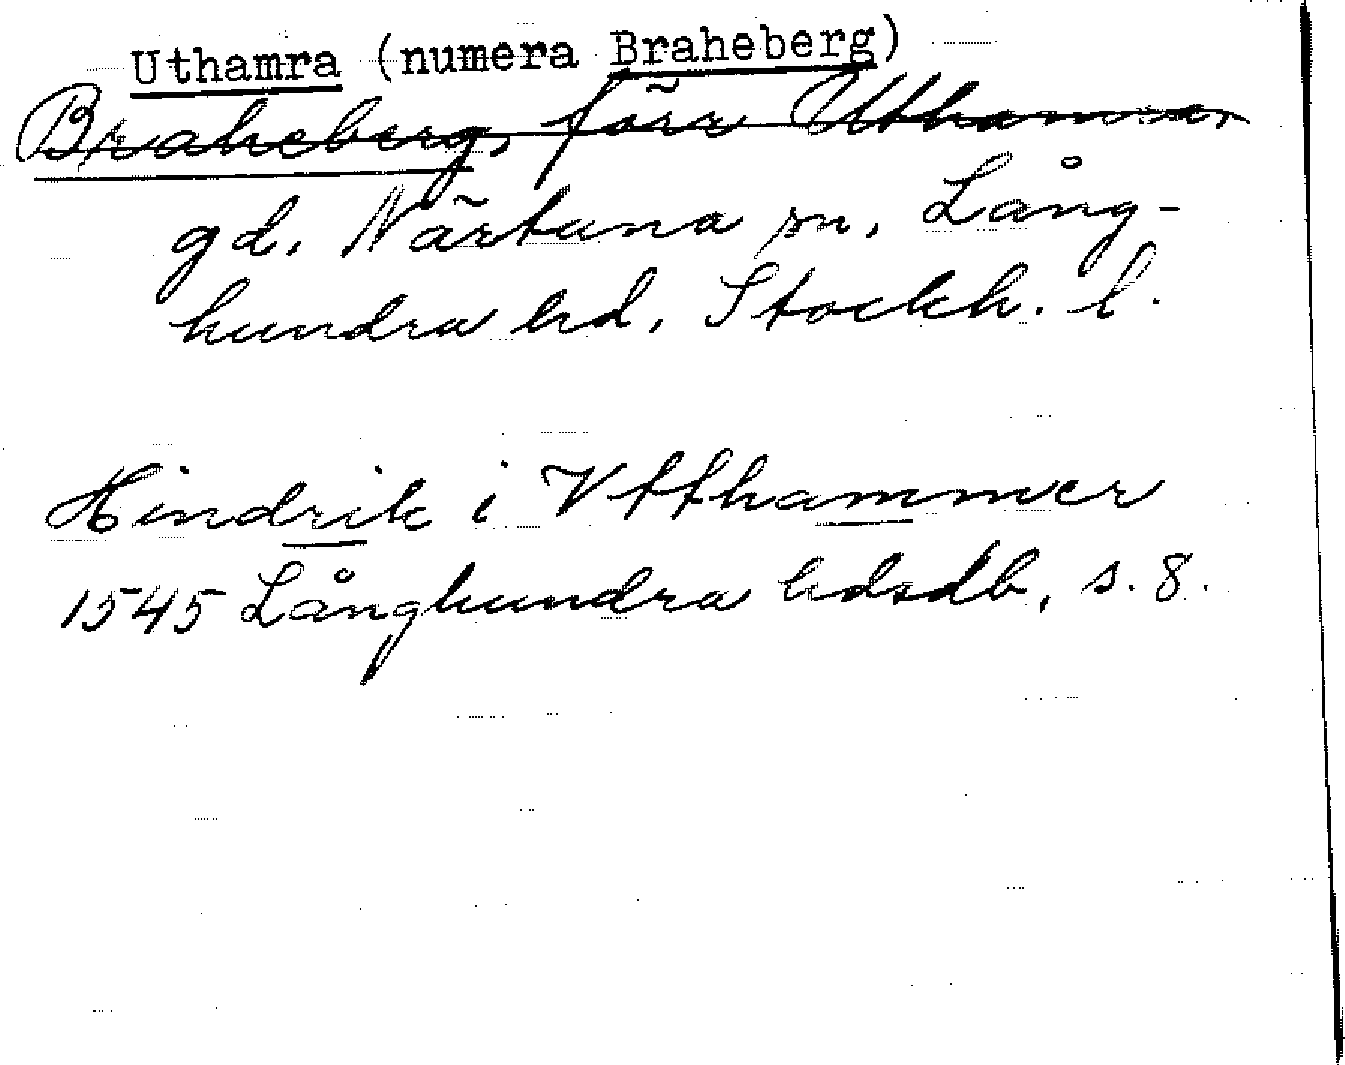 Uthamra (numera Braheberg)
Braheberg, förr Uthamra,
gd. Närtuna sn, Lång-
hundra hd, Stockh. l.
Hindrik i Vtthammer
1545 Långhundra hdsdb, s. 8.